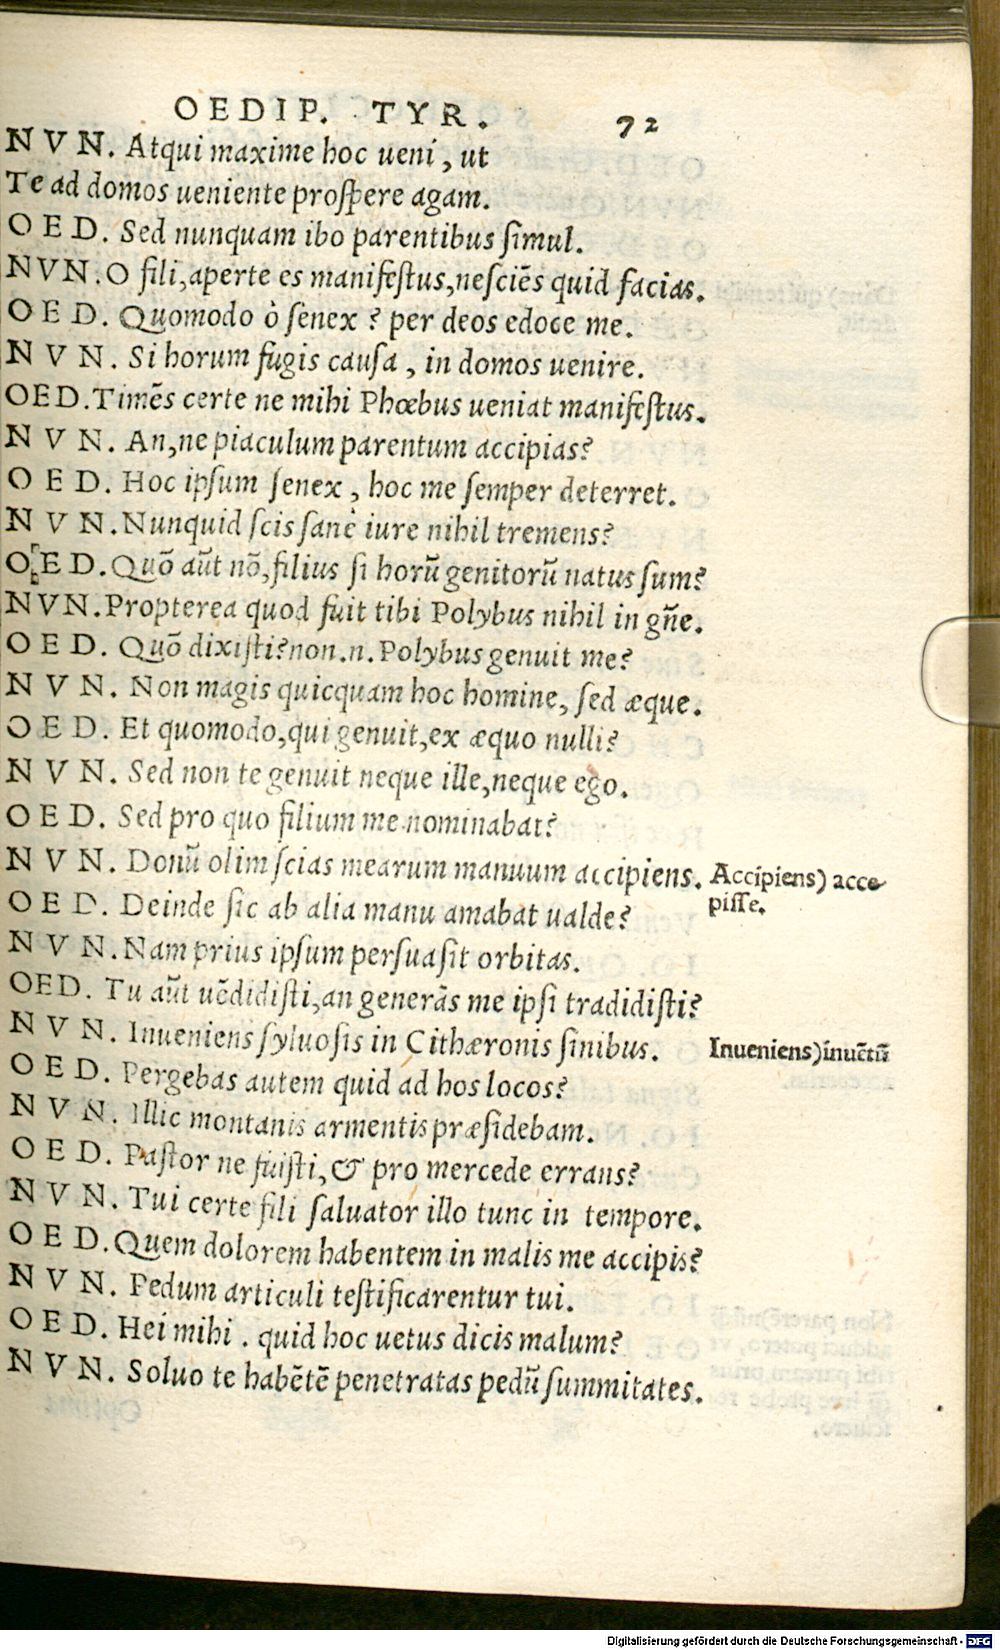 OEDIP. TYR. 72
NVN. Atqui maxime hoc ueni, ut
Te ad domos ueniente prospere agam.
OED. Sed nunquam ibo parentibus simul.
NVN. O fili, aperte es manifestus, nesciēs quid facias.
OED. Quomodo ò senex? per deos edoce me.
NVN. Si horum fugis causa, in domos uenire.
OED. Timēs certe ne mihi Phœbus ueniat manifestus.
NVN. An, ne piaculum parentum accipias?
OED. Hoc ipsum senex, hoc me semper deterret.
NVN. Nunquid scis sanè iure nihil tremens?
OED. Quō aūt nō, filius si horū genitorū natus sum?
NVN. Propterea quod fuit tibi Polybus nihil in gñe.
OED. Quō dixisti? non .n. Polybus genuit me?
NVN. Non magis quicquam hoc homine, sed æque.
OED. Et quomodo, qui genuit, ex æquo nulli?
NVN. Sed non te genuit neque ille, neque ego.
OED. Sed pro quo filium me nominabat?
NVN. Donū olim scias mearum manuum accipiens. Accipiens) acce-
pisse.
OED. Deinde sic ab alia manu amabat ualde?
NVN. Nam prius ipsum persuasit orbitas.
OED. Tu aūt uēdidisti, an generās me ipsi tradidisti?
NVN. Inueniens syluosis in Cithæronis sinibus. Inueniens) inuētū
OED. Pergebas autem quid ad hos locos?
NVN. Illic montanis armentis præsidebam.
OED. Pastor ne fuisti, & pro mercede errans?
NVN. Tui certe fili saluator illo tunc in tempore.
OED. Quem dolorem habentem in malis me accipis?
NVN. Pedum articuli testificarentur tui.
OED. Hei mihi. quid hoc uetus dicis malum?
NVN. Soluo te habētē penetratas pedū summitates.
Digitalisierung gefördert durch die Deutsche Forschungsgemeinschaft - DFG